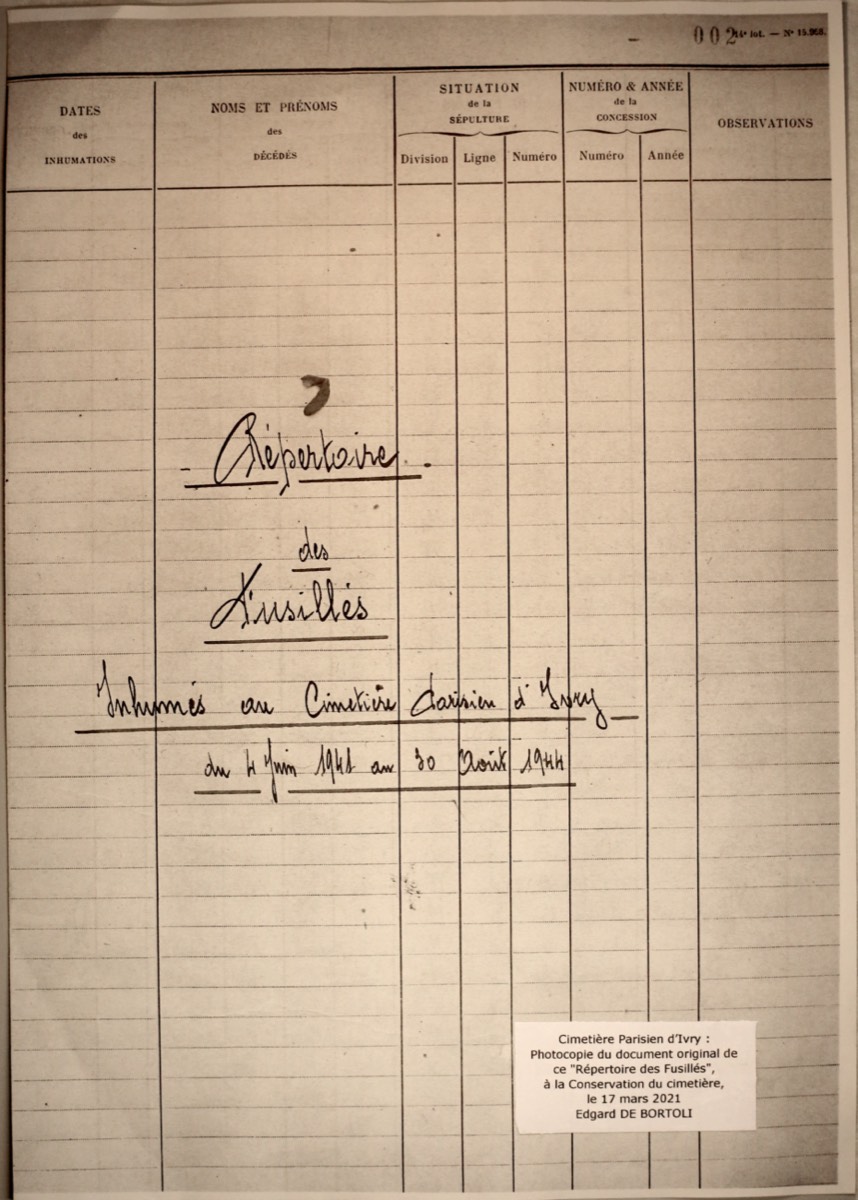 002 14e lot. — N° 15.966.
DATES
des
INHUMATIONS
NOMS ET PRÉNOMS
des
DÉCÉDÉS
SITUATION
de la
SÉPULTURE
Division Ligne Numéro
NUMÉRO & ANNÉE
de la
CONCESSION
Numéro Année
OBSERVATIONS
- Répertoire -
des
Fusillés
Inhumés au Cimetière Parisien d'Ivry
du 4 Juin 1941 au 30 Août 1944
Cimetière Parisien d'Ivry :
Photocopie du document original de
ce "Répertoire des Fusillés",
à la Conservation du cimetière,
le 17 mars 2021
Edgard DE BORTOLI